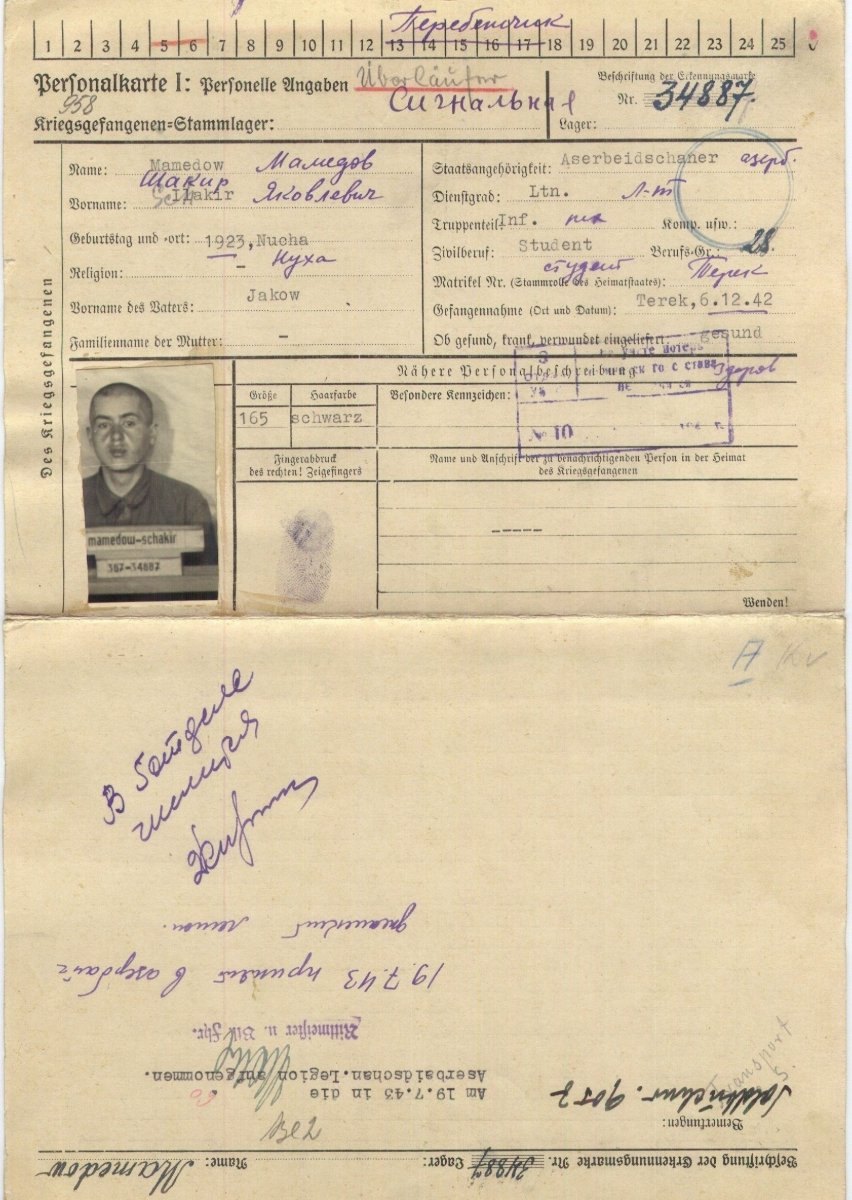 Перебежчик
1 2 3 4 5 6 7 8 9 10 11 12 13 14 15 16 17 18 19 20 21 22 23 24 25
Personalkarte I: Personelle Angaben Überläufer
Beschriftung der Erkennungsmarke
958 Сигнальная Nr. 34887.
Kriegsgefangenen=Stammlager: Lager:
Des Kriegsgefangenen
Name: Mamedow Мамедов
Шакир
Vorname: Schakir Яковлевич
Geburtstag und =ort: 1923, Nucha
Нуха
Religion: –
Vorname des Vaters: Jakow
Familienname der Mutter: –
Staatsangehörigkeit: Aserbeidschaner азерб.
Dienstgrad: Ltn. Л-т
Truppenteil: Inf. пех Komp. usw.:
Zivilberuf: Student Berufs-Gr.: 28.
студент Терек
Matrikel Nr. (Stammrolle des Heimatstaates):
Gefangennahme (Ort und Datum): Terek, 6.12.42
Ob gesund, krank, verwundet eingeliefert: gesund
Nähere Personalbeschreibung здоров
Größe Haarfarbe Besondere Kennzeichen:
165 schwarz
№ 10
Fingerabdruck
des rechten! Zeigefingers
Name und Anschrift der zu benachrichtigenden Person in der Heimat
des Kriegsgefangenen
-----
mamedow-schakir
367-34887
Wenden!
A Kv
В 5 отделе
Beschriftung der Erkennungsmarke Nr. 34887 Lager: Name: Mamedow
Bemerkungen:
Be2
Soldbuchnr. 9057
Transport
5.
Am 19.7.43 in die
Aserbaidschan.Legion aufgenommen.
Rittmeister u. Btl. Fhr.
19.7.43 принят в азербай
джанский легион.